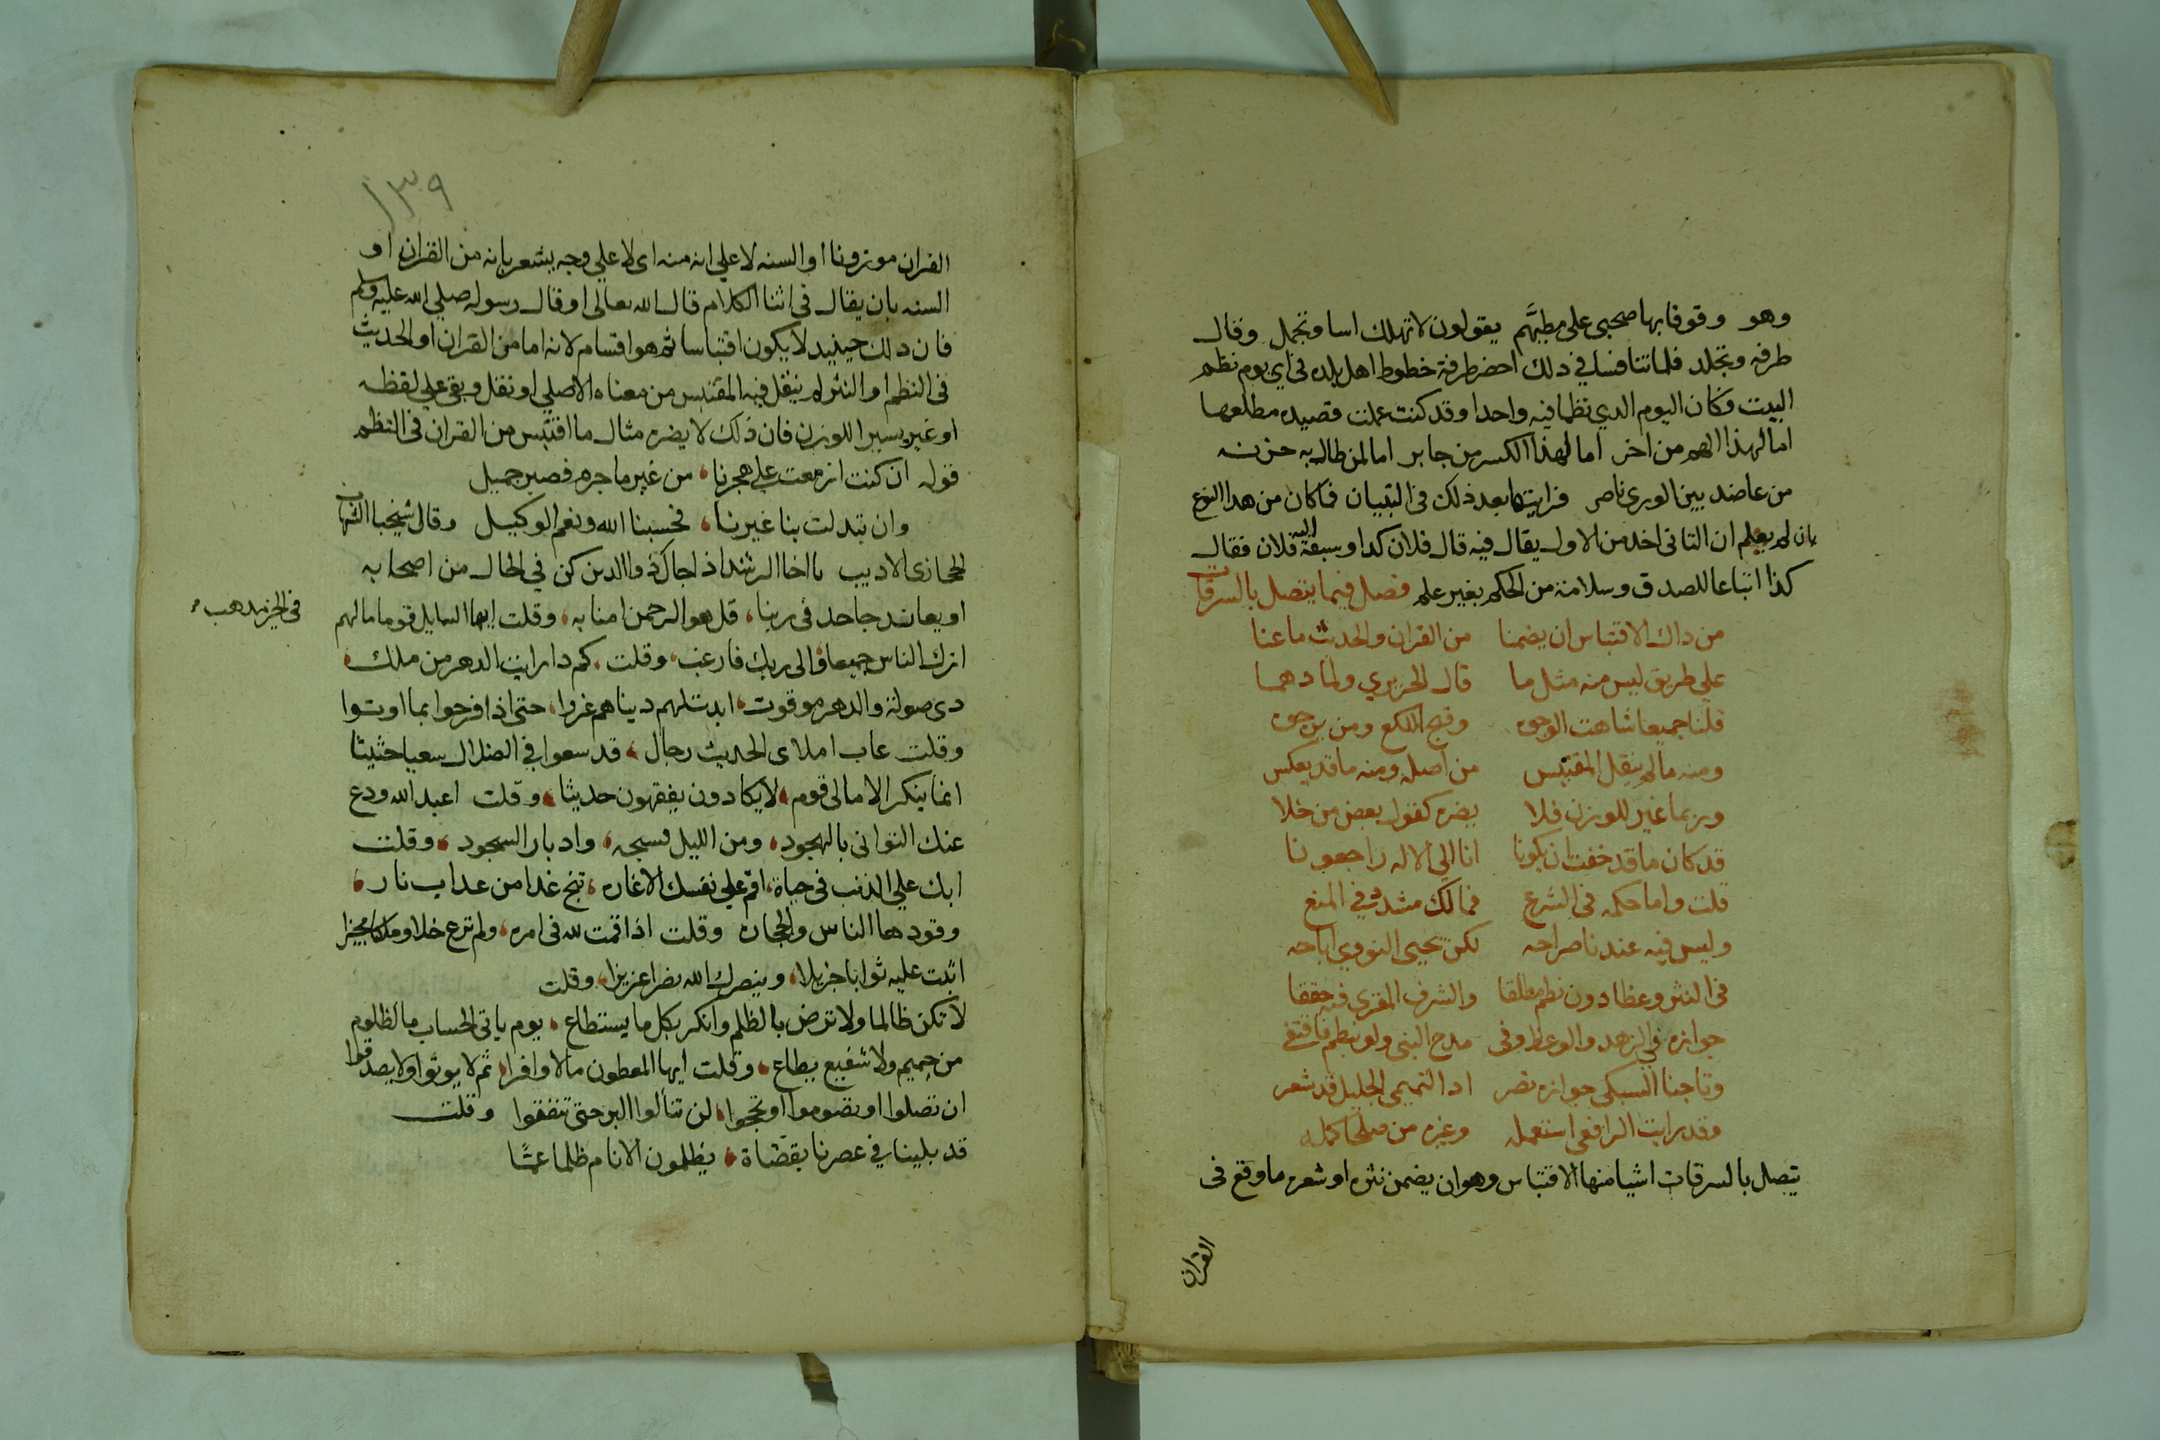 وهو وقوفا بها صحبي على مطيهم يقولون لا تهلك اسا وتجمل وقال
طرفه وتجلد فلما تنافسا في ذلك احضر طرفة خطوط اهل بلده في اي يوم نظم
البيت فكان اليوم الدي نظما فيه واحدا وقد كنت عملت قصيده مطلعها
اما لهذا الهم من اخر اما لهذا الكسر من جابر اما لمن طال به حزنه
من عاضد بين الورى ناصر فرايتها بعد ذلك في التبيان فما كان من هدا النوع
بان لم يعلم ان الثاني اخد من الاول يقال فيه قال فلان كدا وسبقه اليه فلان فقال
كذا اتباعا للصدق وسلامة من الحكم بغير علم فصل فيما يتصل بالسرقات
من داك الاقتباس ان يضمنا من القران والحديث ما عنا
على طريق ليس منه مثل ما قال الحريري ولما دهما
قلنا جميعا شاهت الوجوه وقبح اللكع ومن يرجوه
ومنه ما لم ينقل المقتبس من اصله ومنه ما قد يعكس
وربما غير للوزن فلا يضره كقول بعض من خلا
قد كان ما قد خفت ان يكونا انا الى الاله راجعونا
قلت واما حكمه في الشرع فمالك مشدد في المنع
وليس فيه عندنا صراحه لكن يحيى النووي اباحه
في النثر وعظا دون نظم مطلقا والشرف المقري فيه حققا
جوازه في الزهد والوعظ وفي مدح النبي ولو بنظم فاقتفي
وتاجنا السبكي جوازه نصر اد التميمي الجليل قد شعر
وقد رايت الرافعي استعمله وغيره من صلحا كمله
يتصل بالسرقات اشيا منها الاقتباس وهو ان يضمن نثره او شعره ما وقع في
القران
١٣٩
القران موزونا او السنه لا على انه منه اى لا علي وجه يشعر بانه من القران او
السنه بان يقال في اثنا الكلام قال الله تعالى او قال رسوله صلي الله عليه وسلم
فان دلك حينيد لا يكون اقتباسا ثم هو اقسام لانه اما من القران او الحديث
في النظم او النثر لم ينقل فيه المقتبس من معناه الاصلي او نقل وبقي علي لفظه
او غير يسيرا للوزن فان ذلك لا يضره مثال ما اقتبس من القران في النظم
قوله ان كنت ازمعت علي هجرنا من غير ما جرم فصبر جميل
وان تبدلت بنا غيرنا فحسبنا الله ونعم الوكيل وقال شيخنا الشهاب
الحجازي الاديب يا اخا الرشد اذ اجاك ذوا الدين كن في الحال من اصحابه
او يعاند جاحد في ربنا قل هو الرحمن امنا به وقلت ايها السايل قوما ما لهم
في الخير مدهب
اترك الناس جميعا والى ربك فارغب وقلت كم دا رايت الدهر من ملك
دى صولة والدهر موقوت ابدت لهم دنياهم غروا حتى اذا فرحوا بما اوتوا
وقلت عاب املاى الحديث رجال قد سعوا في الضلال سعيا حثيثا
انما ينكر الامالى قوم لا يكادون يفقهون حديثا وقلت اعبد الله ودع
عنك التوانى بالهجود ومن الليل فسبحه وادبار السجود وقلت
ابك علي الذنب في حياة اقم علي نفسك الاغاره تنج غدا من عداب نار
وقودها الناس والحجاره وقلت اذا قمت لله في امره ولم ترع خلا ولا
اثبت عليه ثوابا جزيلا وينصرك الله نصرا عزيزا وقلت
لا تكن ظالما ولا ترض بالظلم وانكر بكل ما يستطاع يوم ياتى الحساب ما لظلوم
من حميم ولا شفيع يطاع وقلت ايها المعطون مالا وافرا ثم لا يوتوا ولا يصدقوا
ان تصلوا او تصوموا او تحجوا لن تنالوا البر حتى تنفقوا وقلت
قد بلينا في عصرنا بقضاة يظلمون الانام ظلما عما